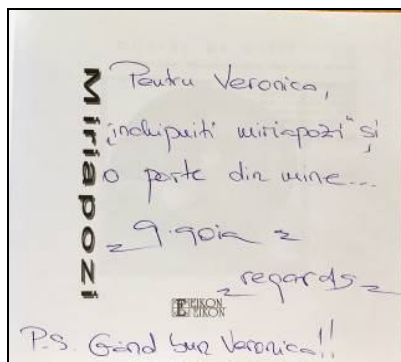 Miriapozi
Pentru Veronica,
„închipuiti miriapozi" și
o parte din mine...
regards
EIKON
EIKON
P.S. Gând bun Veronica!!